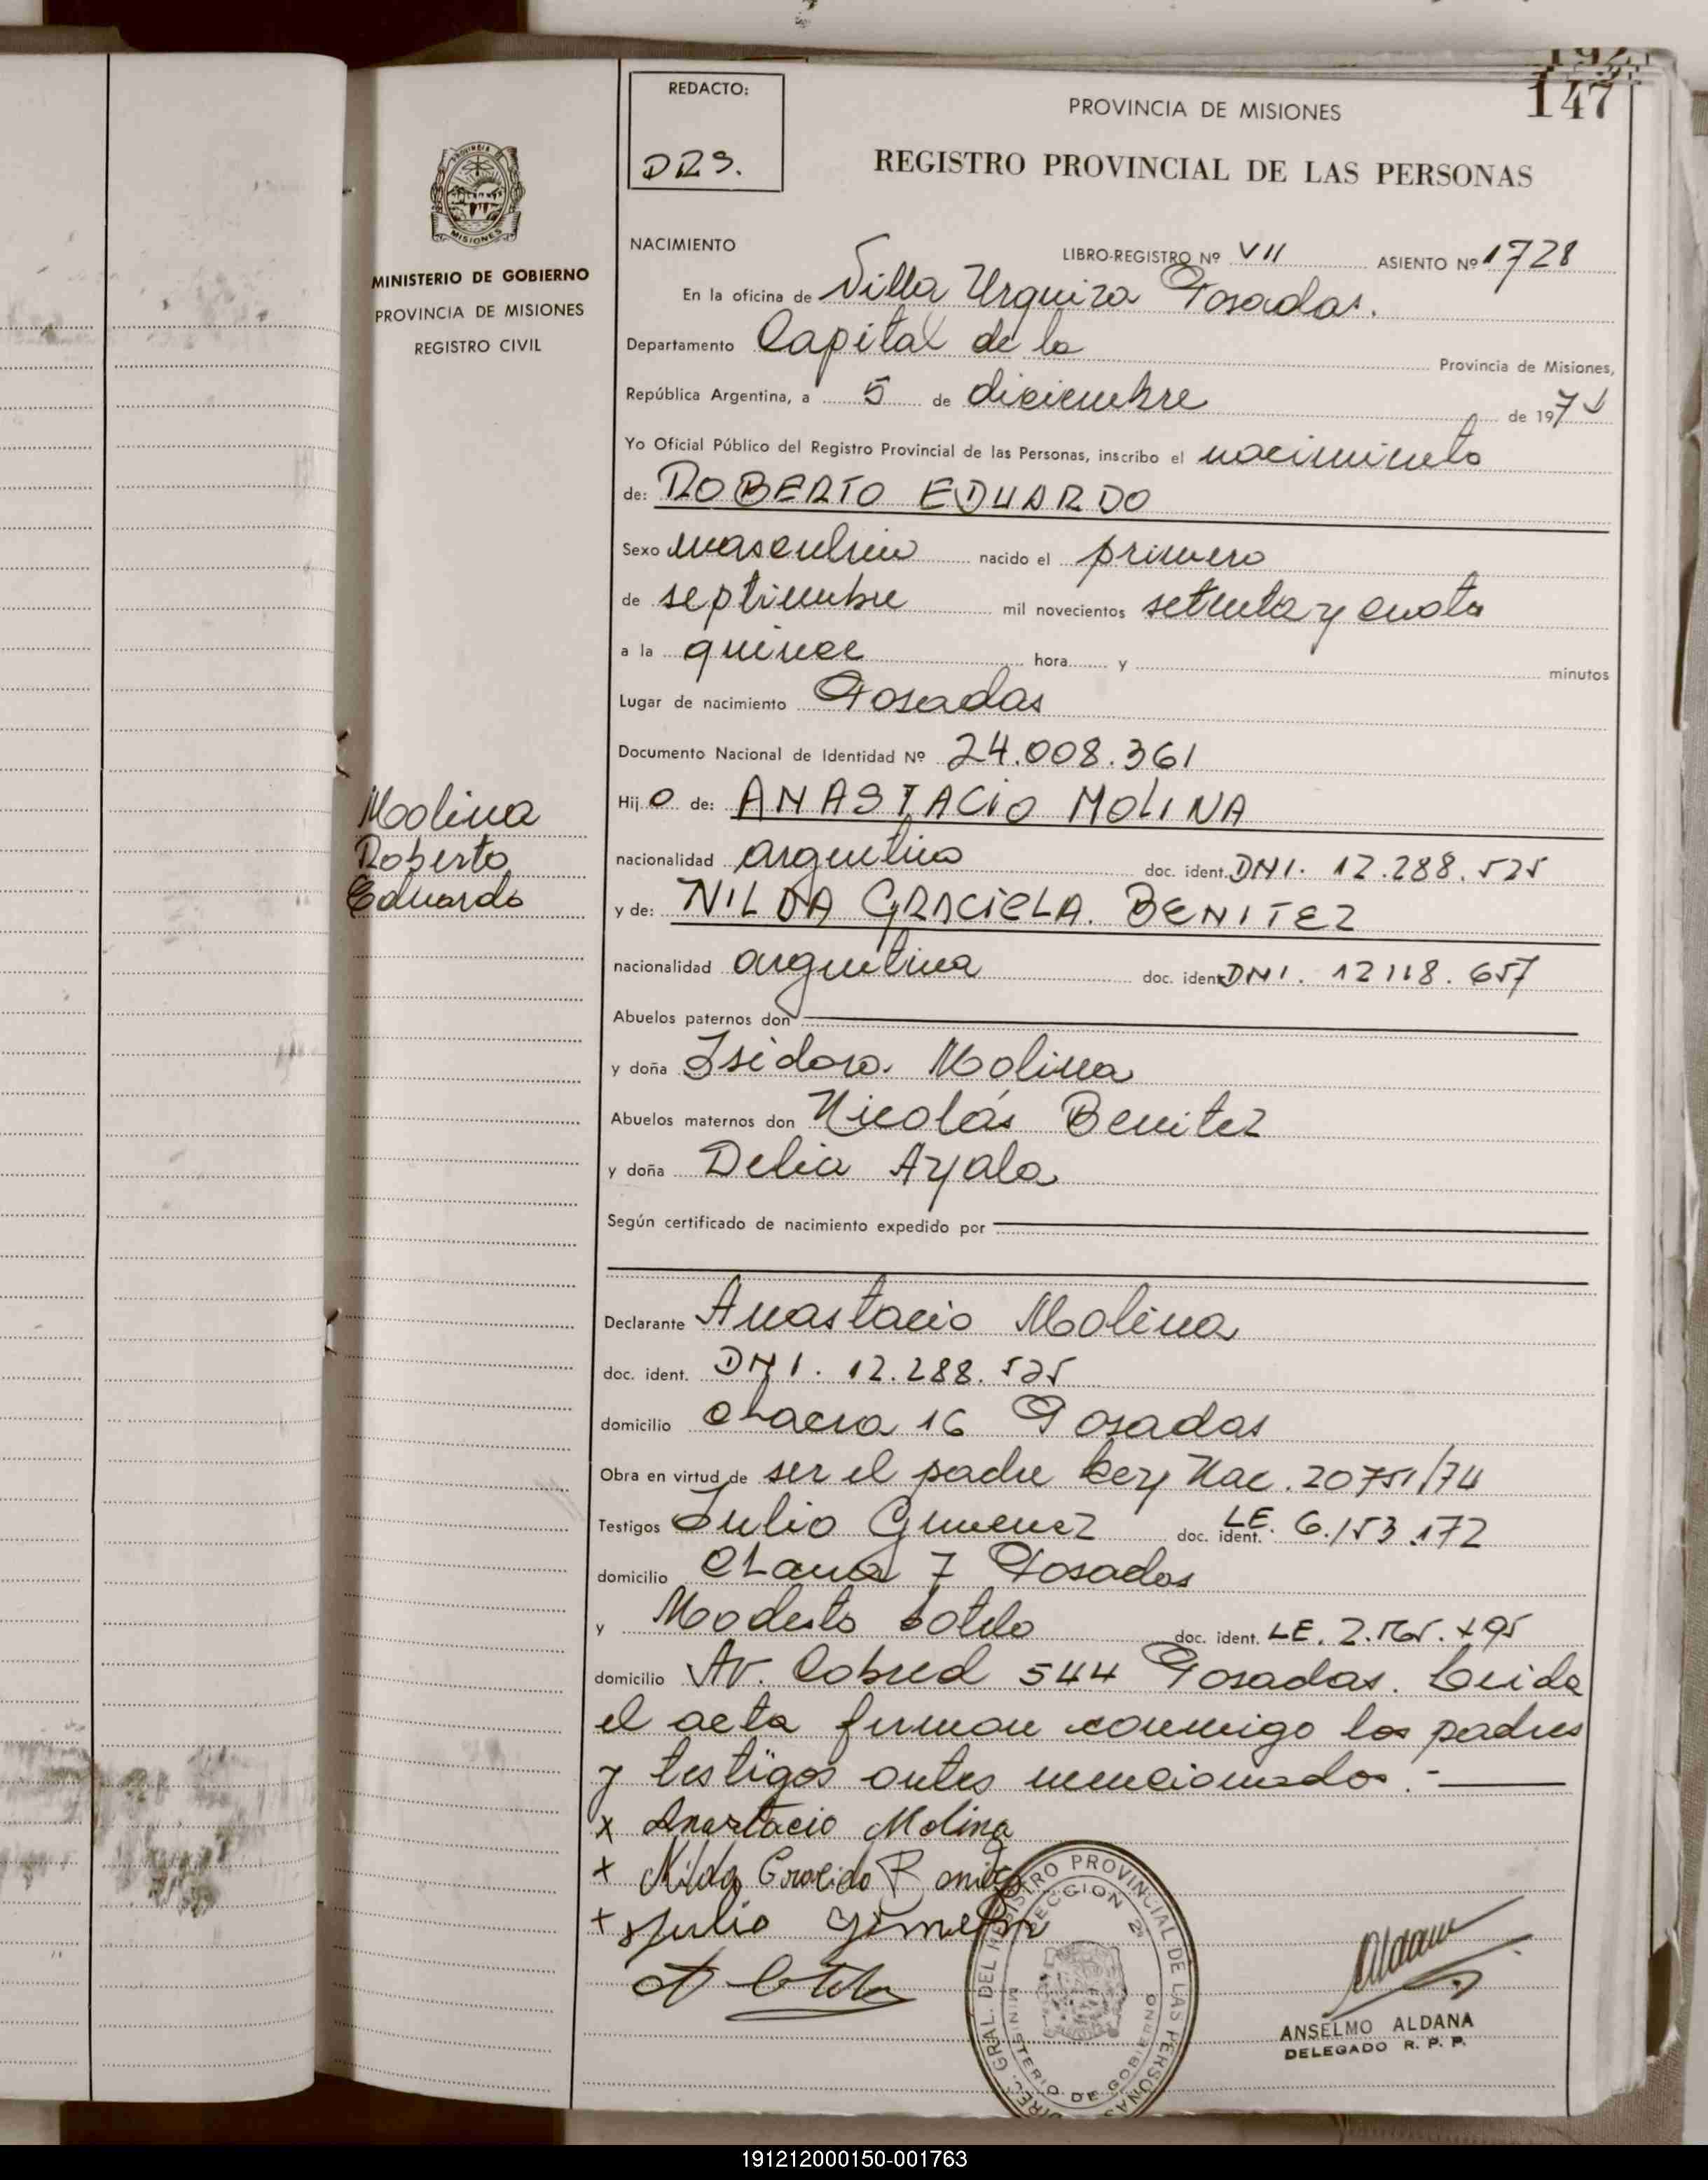 192
147
REDACTO:
DRS.
PROVINCIA DE MISIONES
REGISTRO PROVINCIAL DE LAS PERSONAS
PROVINCIA DE MISIONES
MINISTERIO DE GOBIERNO
PROVINCIA DE MISIONES
REGISTRO CIVIL
NACIMIENTO LIBRO-REGISTRO Nº VII ASIENTO Nº 1728
En la oficina de Villa Urquiza Posadas.
Departamento Capital de la Provincia de Misiones,
República Argentina, a 5 de diciembre de 197
Yo Oficial Público del Registro Provincial de las Personas, inscribo el nacimiento
de: ROBERTO EDUARDO
Sexo masculino nacido el primero
de septiembre mil novecientos setenta y cuatro
a la quince hora y minutos
Lugar de nacimiento Posadas
Documento Nacional de Identidad Nº 24.008.361
Hij o de: ANASTACIO MOLINA
Molina
Roberto
Eduardo
nacionalidad argentino doc. ident. DNI. 12.288.525
y de: NILDA GRACIELA. BENITEZ
nacionalidad argentina doc. ident. DNI. 12118.657
Abuelos paternos don
y doña Isidora Molina
Abuelos maternos don Nicolás Benitez
y doña Delia Ayala
Según certificado de nacimiento expedido por
Declarante Anastacio Molina
doc. ident. DNI. 12.288.525
domicilio chacra 16 Posadas
Obra en virtud de ser el padre Ley Nac. 20751/74
Testigos Julio Gimenez doc. ident. LE. 6.153.172
domicilio Chacra 7 Posadas
y Modesto Sotelo doc. ident. LE.
domicilio Av. Cabred 544 Posadas. Leida
el acta firman conmigo los padres
y testigos antes mencionados.-
x Anastacio Molina
x Nilda
x Julio
Sotelo
DIREC. GRAL. DEL REGISTRO PROVINCIAL DE LAS PERSONAS
SECCION 2ª
MINISTERIO DE GOBIERNO
Aldana
ANSELMO ALDANA
DELEGADO R. P. P.
191212000150-001763